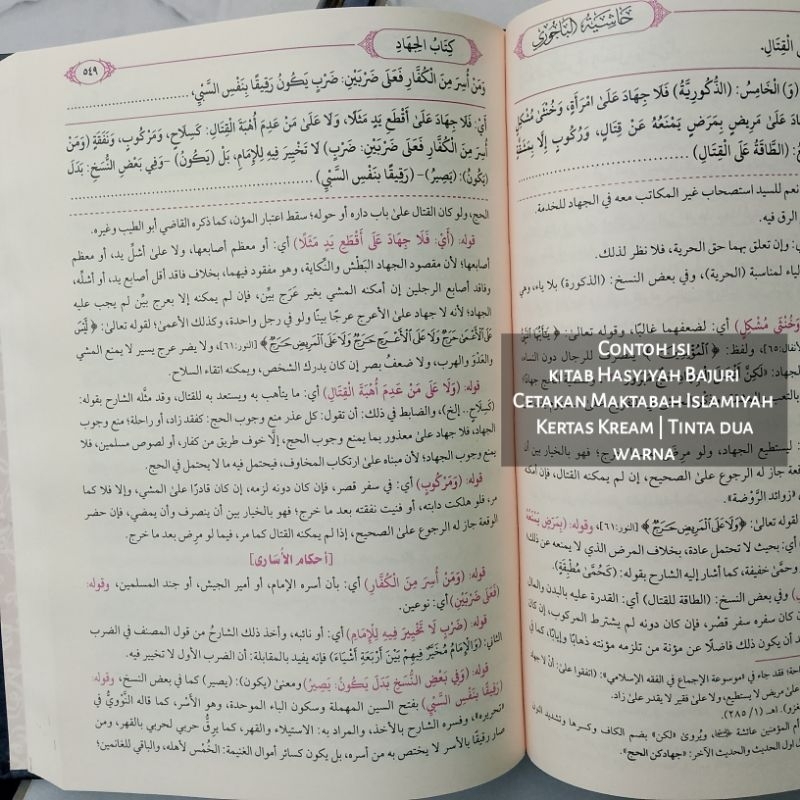 حَاشِيَةُ البَاجُورِي
الْقِتَالِ.
(وَ) الْخَامِسُ: (الذُّكُورِيَّةُ) فَلَا جِهَادَ عَلَىٰ امْرَأَةٍ، وَخُنْثَىٰ مُشْكِلٍ
عَلَىٰ مَرِيضٍ بِمَرَضٍ يَمْنَعُهُ عَنْ قِتَالٍ، وَرُكُوبٍ إِلَّا بِمَشَقَّةٍ
(الطَّاقَةُ عَلَى الْقِتَالِ)
نعم للسيد استصحاب غير المكاتب معه في الجهاد للخدمة.
الرق فيه.
وإن تعلق بهما حق الحرية، فلا نظر لذلك.
لمناسبة (الحرية)، وفي بعض النسخ: (الذكورة) بلا ياء، وهي
(وَخُنْثَى مُشْكِلٍ) أي: لضعفهما غالبًا، وقوله تعالىٰ:
للرجال دون النساء
ليستطيع الجهاد، ولو مرض
جاز له الرجوع على الصحيح، إن لم يمكنه القتال، فإن أمكنه
«زوائد الرَّوْضة».
قوله تعالىٰ: ﴿وَلَا عَلَى الْمَرِيضِ حَرَجٌ﴾ [النور: ٦١]، وقوله: (بِمَرَضٍ يَمْنَعُهُ
أي: بحيث لا تحتمل عادة، بخلاف المرض الذي لا يمنعه عن ذلك
وحمَّىٰ خفيفة، كما أشار إليه الشارح بقوله: (كَحُمَّىٰ مُطْبِقَةٍ).
وفي بعض النسخ: (الطاقة للقتال) أي: القدرة عليه بالبدن والمال
كان سفره سفر قصر، فإن كان دونه لم يشترط المركوب، إن كان
أن يكون ذلك فاضلًا عن مؤنة من تلزمه مؤنته ذهابًا وإيابًا، كما في
فقد جاء في «موسوعة الإجماع في الفقه الإسلامي»: (اتفقوا علىٰ: أنْ لا جهاد
علىٰ مريض لا يستطيع، ولا علىٰ فقير لا يقدر علىٰ زاد.
اهـ (١/ ٢٨٥).
المؤمنين عائشة ويروىٰ «لكن» بضم الكاف وكسرها وتشديد النون
أول الحديث والحديث الآخر: «جهادكن الحج».
Contoh isi
kitab Hasyiyah Bajuri
Cetakan Maktabah Islamiyah
Kertas Kream | Tinta dua
warna
كِتَابُ الجِهَادِ
٥٤٩
وَمَنْ أُسِرَ مِنَ الْكُفَّارِ فَعَلَى ضَرْبَيْنِ: ضَرْبٍ يَكُونُ رَقِيقًا بِنَفْسِ السَّبْيِ،
أَيْ: فَلَا جِهَادَ عَلَىٰ أَقْطَعِ يَدٍ مَثَلًا، وَلَا عَلَىٰ مَنْ عَدِمَ أُهْبَةَ الْقِتَالِ: كَسِلَاحٍ، وَمَرْكُوبٍ، وَنَفَقَةٍ (وَمَنْ
أُسِرَ مِنَ الْكُفَّارِ فَعَلَىٰ ضَرْبَيْنِ: ضَرْبٍ) لَا تَخْيِيرَ فِيهِ لِلْإِمَامِ، بَلْ (يَكُونُ) -وَفِي بَعْضِ النُّسَخِ: بَدَلَ
(يَكُونُ): (يَصِيرُ)- (رَقِيقًا بِنَفْسِ السَّبْيِ)
الحج، ولو كان القتال علىٰ باب داره أو حوله؛ سقط اعتبار المؤن، كما ذكره القاضي أبو الطيب وغيره.
قوله: (أَيْ: فَلَا جِهَادَ عَلَى أَقْطَعِ يَدٍ مَثَلًا) أي: أو معظم أصابعها، ولا علىٰ أشلِّ يد، أو معظم
أصابعها؛ لأن مقصود الجهاد البَطْش والنِّكاية، وهو مفقود فيهما، بخلاف فاقد أقل أصابع يد، أو أشلِّه،
وفاقد أصابع الرجلين إن أمكنه المشي بغير عَرَجٍ بيِّن، فإن لم يمكنه إلا بعرج بيِّن لم يجب عليه
الجهاد؛ لأنه لا جهاد علىٰ الأعرج عرجًا بينًا ولو في رجل واحدة، وكذلك الأعمىٰ؛ لقوله تعالىٰ: ﴿لَّيْسَ
عَلَى ٱلْأَعْمَىٰ حَرَجٌ وَلَا عَلَى ٱلْأَعْرَجِ حَرَجٌ وَلَا عَلَى ٱلْمَرِيضِ حَرَجٌ﴾ [النور: ٦١]، ولا يضر عرج يسير لا يمنع المشي
والعَدْوَ والهرب، ولا ضعفُ بصرٍ إن كان يدرك الشخص، ويمكنه اتقاء السلاح.
قوله: (وَلَا عَلَىٰ مَنْ عَدِمَ أُهْبَةَ الْقِتَالِ) أي: ما يتأهب به ويستعد به للقتال، وقد مثَّله الشارح بقوله:
(كَسِلَاحٍ... إلخ)، والضابط في ذلك: أن تقول: كل عذر منع وجوب الحج: كفقد زاد، أو راحلة؛ منع وجوب
الجهاد، فلا جهاد علىٰ معذور بما يمنع وجوب الحج، إلَّا خوف طريق من كفار، أو لصوص مسلمين، فلا
يمنع وجوبَ الجهاد؛ لأن مبناه علىٰ ارتكاب المخاوف، فيحتمل فيه ما لا يحتمل في الحج.
قوله: (وَمَرْكُوبٍ) أي: في سفر قصر، فإن كان دونه لزمه، إن كان قادرًا علىٰ المشي، وإلا فلا كما
مر، فلو هلكت دابته، أو فنيت نفقته بعد ما خرج؛ فهو بالخيار بين أن ينصرف وأن يمضي، فإن حضر
الوقعة جاز له الرجوع علىٰ الصحيح، إذا لم يمكنه القتال كما مر، فيما لو مرض بعد ما خرج.
[أحكام الأسارى]
قوله: (وَمَنْ أُسِرَ مِنَ الْكُفَّارِ) أي: بأن أسره الإمام، أو أمير الجيش، أو جند المسلمين، وقوله:
(فَعَلَىٰ ضَرْبَيْنِ) أي: نوعين.
قوله: (ضَرْبٍ لَا تَخْيِيرَ فِيهِ لِلْإِمَامِ) أي: أو نائبه، وأخذ ذلك الشارحُ من قول المصنف في الضرب
الثاني: (وَالْإِمَامُ مُخَيَّرٌ فِيهِمْ بَيْنَ أَرْبَعَةِ أَشْيَاءَ) فإنه يفيد بالمقابلة: أن الضرب الأول لا تخيير فيه.
قوله: (وَفِي بَعْضِ النُّسَخِ بَدَلَ يَكُونُ: يَصِيرُ) ومعنىٰ (يكون): (يصير) كما في بعض النسخ، وقوله:
(رَقِيقًا بِنَفْسِ السَّبْيِ) بفتح السين المهملة وسكون الباء الموحدة، وهو الأسْر، كما قاله النَّوَوِيُّ في
«تحريره»، وفسره الشارح بالأخذ، والمراد به: الاستيلاء والقهر، كما يرِقُّ حربي لحربي بالقهر، ومن
صار رقيقًا بالأسر لا يختص به من أسره، بل يكون كسائر أموال الغنيمة: الخُمُس لأهله، والباقي للغانمين؛